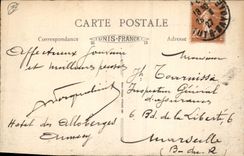 CARTE POSTALE
Correspondance
UNIS-FRANCE
Affectueux souvenir
et meilleures pensées
Hotel des Allobroges
Annecy
Monsieur
Jh Tournissa
Inspecteur Général
d'assurances
6 Bd de la Liberté 6
Marseille
(B. du R.)